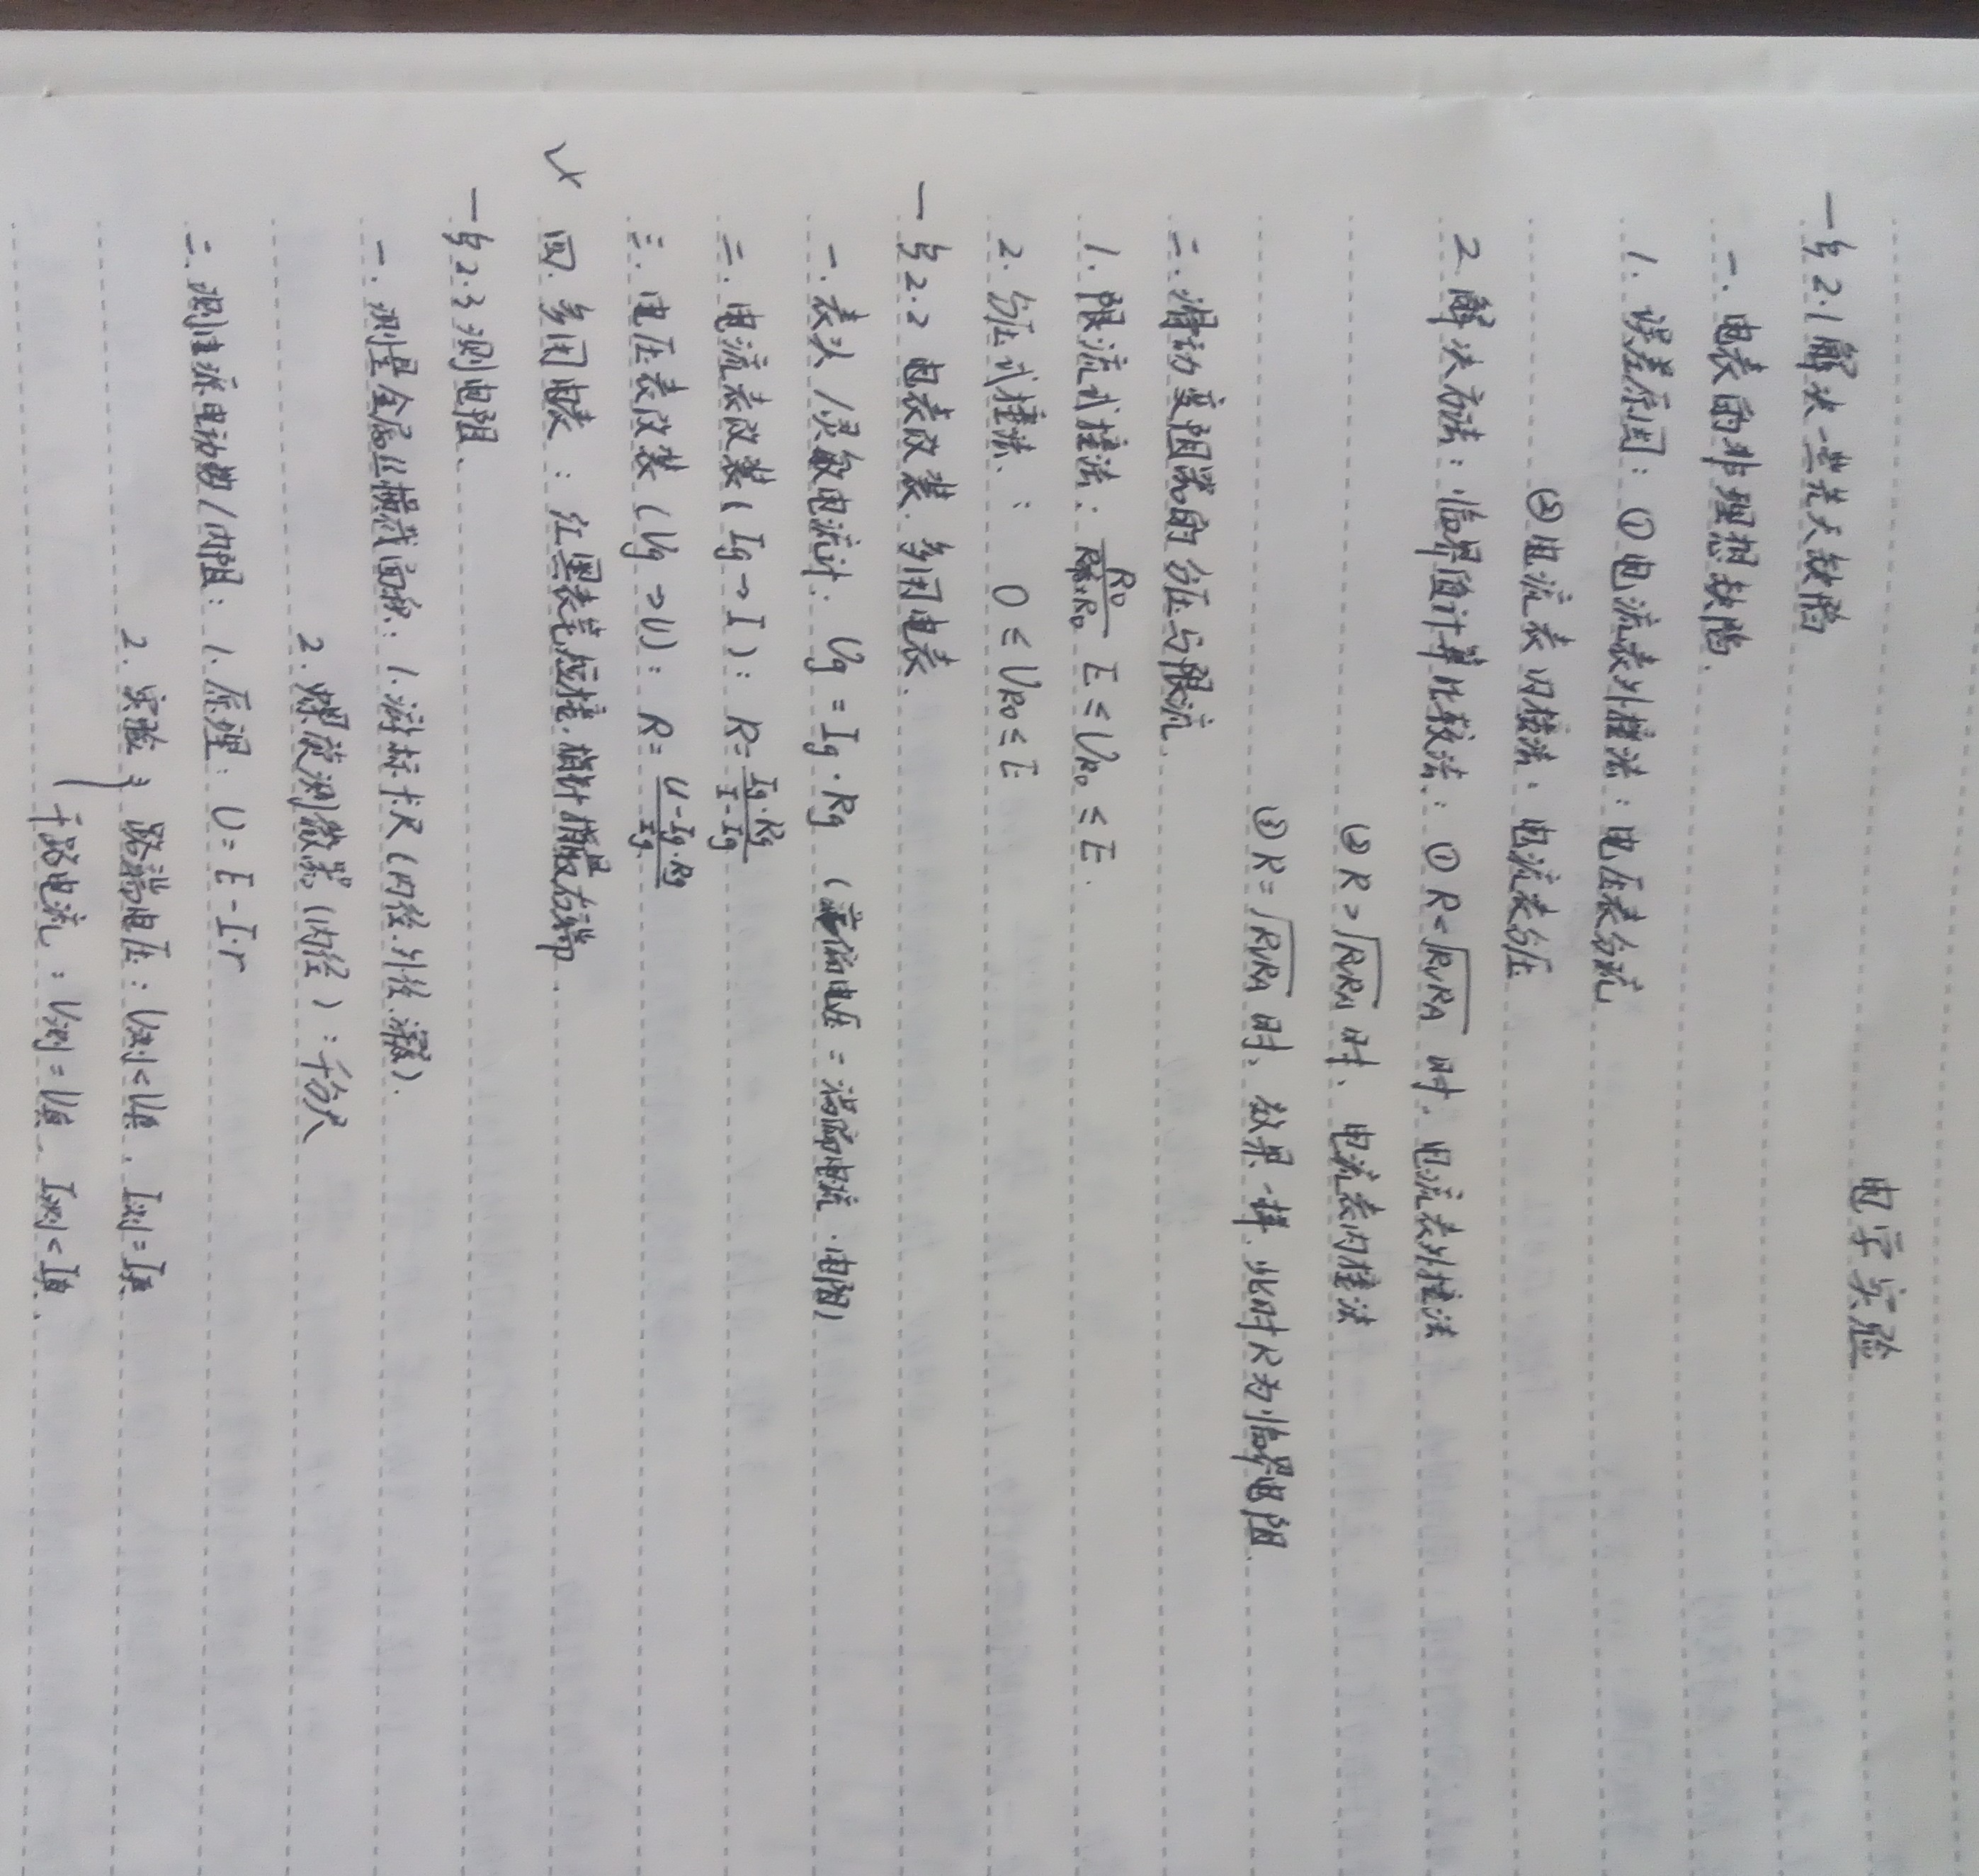 电学实验
一节2.1 解决一些先天缺陷
一. 电表的非理想缺陷.
1. 误差原因: ① 电流表外接法: 电压表分流
② 电流表内接法: 电流表分压
2. 解决方法: 临界值计算比较法: ① R<√RVRA 时. 电流表外接法
② R>√RVRA 时、电流表内接法
③ R=√RVRA 时、效果一样. 此时R为临界电阻.
二. 滑动变阻器的分压与限流.
1. 限流式接法: R0/R滑+R0 E ≤ UR0 ≤ E.
2. 分压式接法.: 0 ≤ UR0 ≤ E
一节2.2 电表改装. 多用电表.
一. 表头/灵敏电流计: Ug = Ig·Rg (满偏电压 = 满偏电流·电阻)
二. 电流表改装 (Ig→I): R= Ig·Rg/I-Ig
三. 电压表改装 (Ug→U): R= U-Ig·Rg/Ig
四. 多用电表: 红黑表笔短接. 指针指最右端
一节2.3 测电阻.
一. 测量金属丝横截面积: 1. 游标卡尺 (内径.外径.深度).
2. 螺旋测微器 (内径): 千分尺
二. 测电源电动势/内阻: 1. 原理: U= E - I·r
2. 实验 { 路端电压: U测<U真. I测=I真
干路电流: U测=U真. I测<I真.